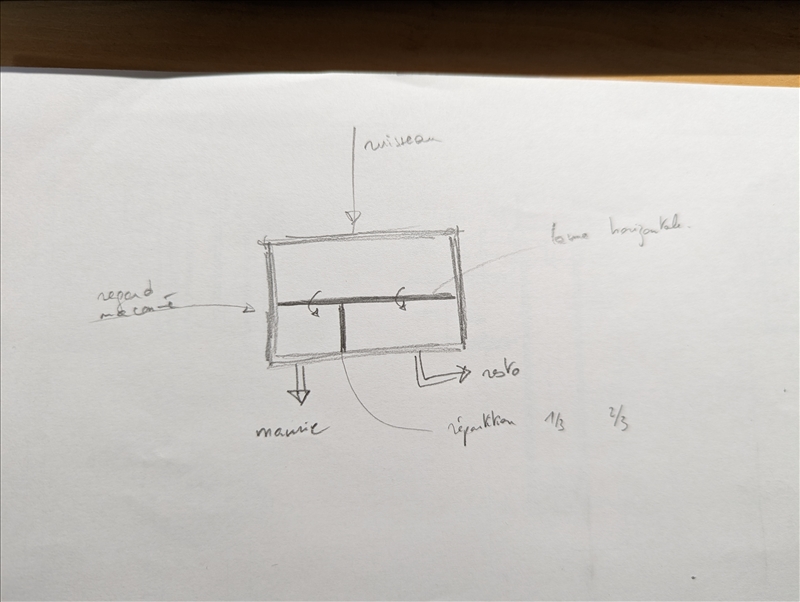 ruisseau
lame horizontale.
regard
maçonné
resto
mairie
répartition 1/3 2/3